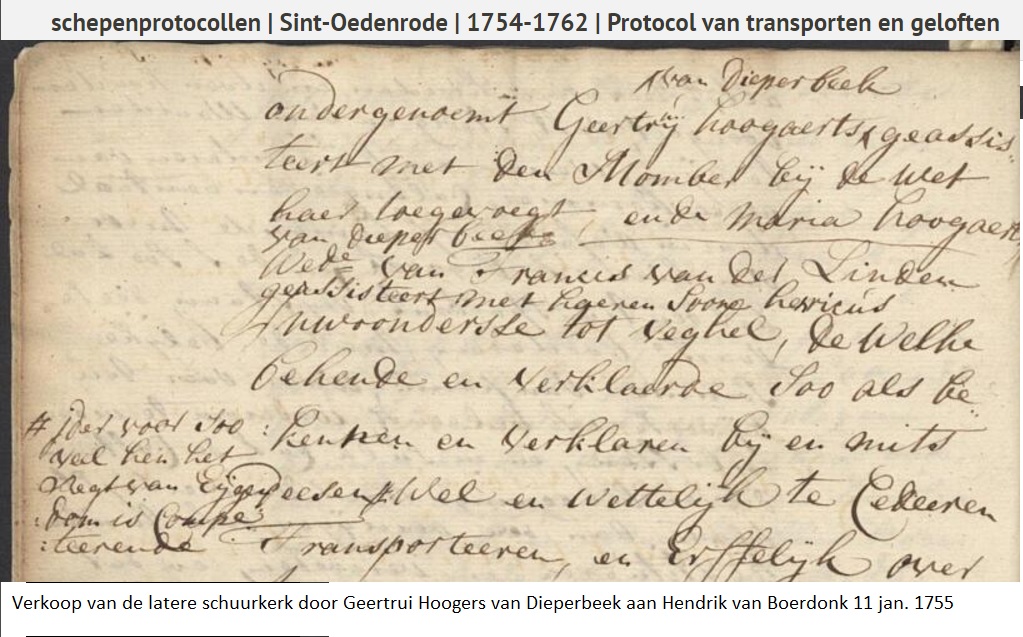 schepenprotocollen | Sint-Oedenrode | 1754-1762 | Protocol van transporten en geloften
van Dieperbeek
ondergenoemt Geertrÿ hoogaerts geassis
teert met den Momber bij de Wet
haer toegevoegt, ende Maria hoogaerts
van dieperbeek
Wede van Francis van der Linden
geassisteert met haeren Soone henricus
Inwoonderse tot Veghel, de Welke
bekende en verklaerde Soo als be
kennen en verklaren bij en mits
# ider voor Soo
veel hen het
regt van Eijgen
dom is Compe
teerende
deesen # Wel en Wettelijk te Cedeeren
Transporteeren, en Erffelijk over
Verkoop van de latere schuurkerk door Geertrui Hoogers van Dieperbeek aan Hendrik van Boerdonk 11 jan. 1755